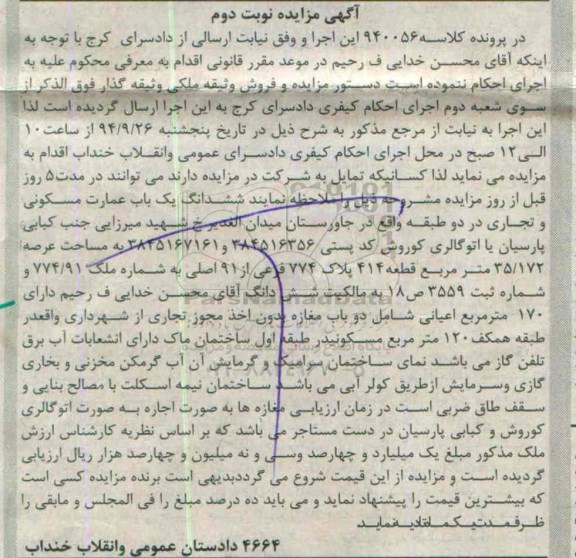 آگهی مزایده نوبت دوم
در پرونده کلاسه ۹۴۰۰۵۶ این اجرا و وفق نیابت ارسالی از دادسرای کرج با توجه به
اینکه آقای محسن خدایی ف رحیم در موعد مقرر قانونی اقدام به معرفی محکوم علیه به
اجرای احکام ننموده است دستور مزایده و فروش وثیقه ملکی وثیقه گذار فوق الذکر از
سوی شعبه دوم اجرای احکام کیفری دادسرای کرج به این اجرا ارسال گردیده است لذا
این اجرا به نیابت از مرجع مذکور به شرح ذیل در تاریخ پنجشنبه ۹۴/۹/۲۶ از ساعت۱۰
الی۱۲ صبح در محل اجرای احکام کیفری دادسرای عمومی وانقلاب خنداب اقدام به
مزایده می نماید لذا کسانیکه تمایل به شرکت در مزایده دارند می توانند در مدت۵ روز
قبل از روز مزایده مشروحه ذیل را ملاحظه نمایند ششدانگ یک باب عمارت مسکونی
و تجاری در دو طبقه واقع در جاورستان میدان الغدیر خ شهید میرزایی جنب کبابی
پارسیان یا اتوگالری کوروش کد پستی ۳۸۴۵۱۶۳۵۶ و ۳۸۴۵۱۶۷۱۶۱ به مساحت عرصه
۳۵/۱۷۲ متر مربع قطعه۴۱۴ پلاک ۷۷۴ فرعی از۹۱ اصلی به شماره ملک ۷۷۴/۹۱ و
شماره ثبت ۳۵۵۹ ص۱۸ به مالکیت شش دانگ آقای محسن خدایی ف رحیم دارای
۱۷۰ مترمربع اعیانی شامل دو باب مغازه بدون اخذ مجوز تجاری از شهرداری واقعدر
طبقه همکف۱۲۰ متر مربع مسکونیدر طبقه اول ساختمان ماک دارای انشعابات آب برق
تلفن گاز می باشد نمای ساختمان سرامیک و گرمایش آن آب گرمکن مخزنی و بخاری
گازی وسرمایش ازطریق کولر آبی می باشد ساختمان نیمه اسکلت با مصالح بنایی و
سقف طاق ضربی است در زمان ارزیابی مغازه ها به صورت اجاره به صورت اتوگالری
کوروش و کبابی پارسیان در دست مستاجر می باشد که بر اساس نظریه کارشناس ارزش
ملک مذکور مبلغ یک میلیارد و چهارصد وسی و نه میلیون و چهارصد هزار ریال ارزیابی
گردیده است و مزایده از این قیمت شروع می گرددبدیهی است برنده مزایده کسی است
که بیشترین قیمت را پیشنهاد نماید و می باید ده درصد مبلغ را فی المجلس و مابقی را
ظرف مدت یک ماه تادیه نماید
۴۶۶۴ دادستان عمومی وانقلاب خنداب